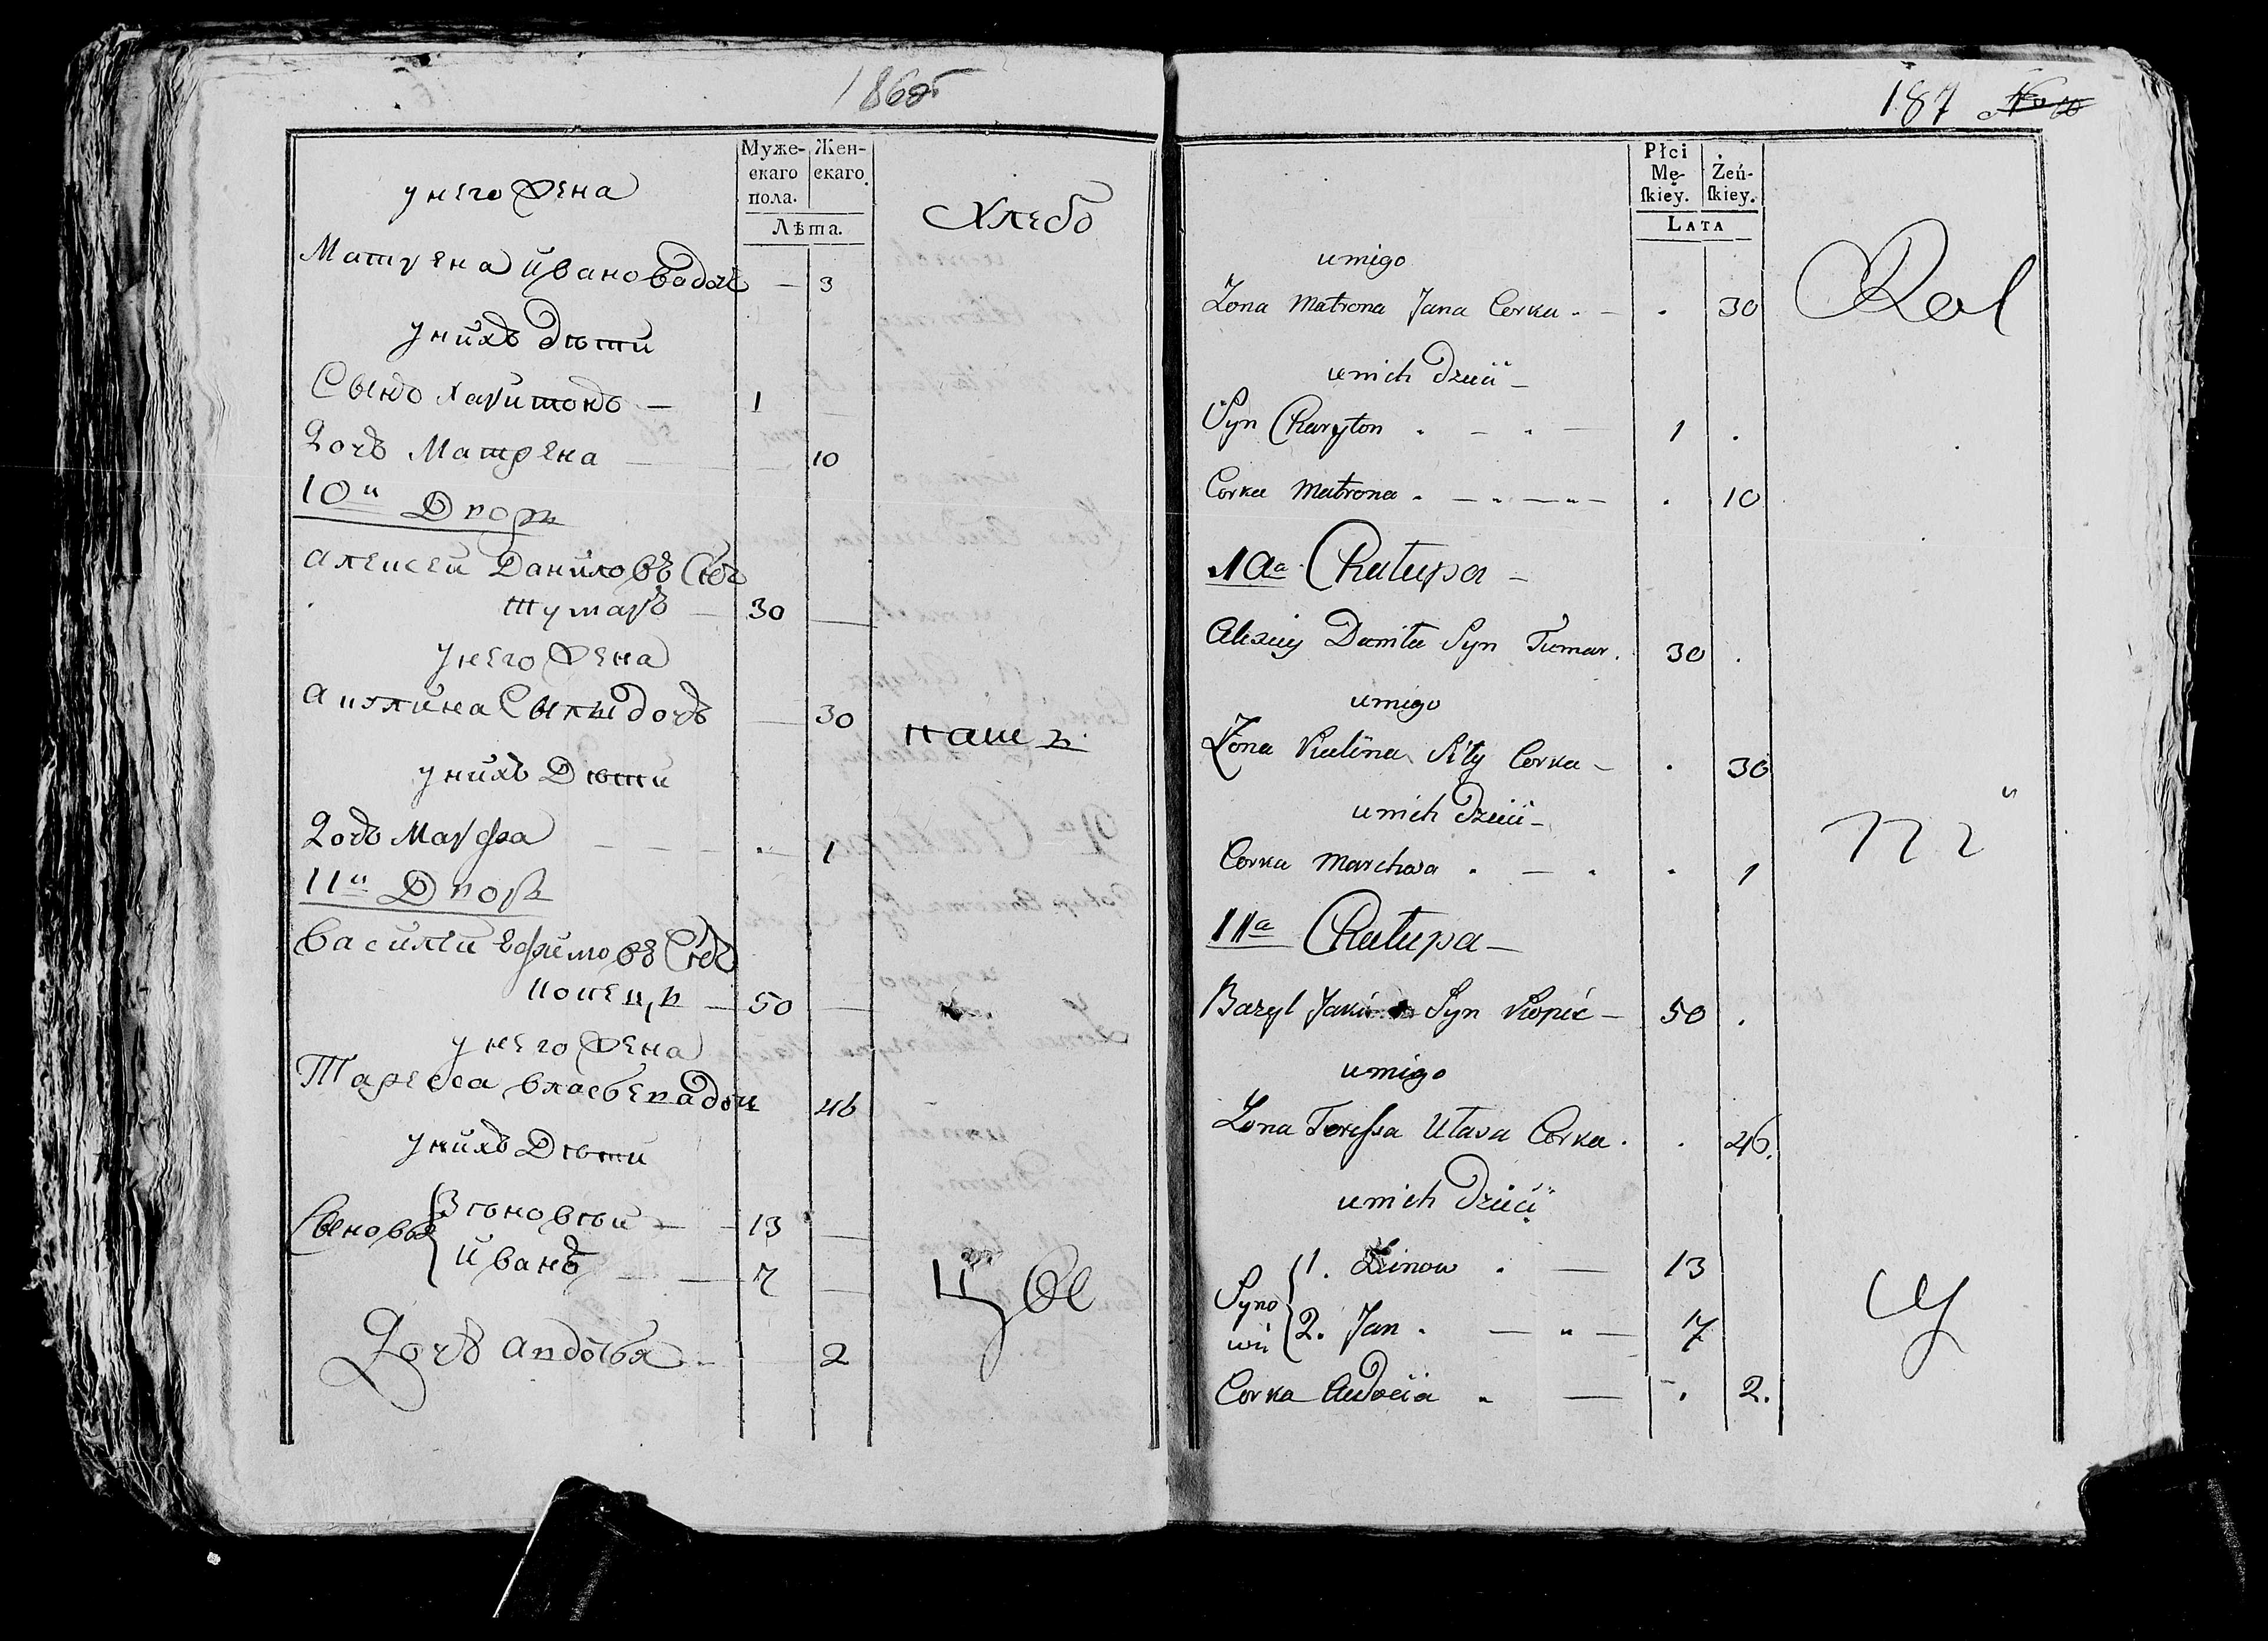 186об
Муже-
скаго
пола.
Жен-
скаго.
Лѣта.
у него жена
Хлебо
Матрена ивановадоч — 3
У нихъ дѣти
Сынъ харитонъ — 1
Дочь Матрена — 10
10й Дворъ
Алексей Даниловъ Снъ
тумаръ — 30
У него жена
Акулина Силыдочь — 30
пашц
у нихъ Дѣти
Дочь Марфа — 1
11й Дворъ
Василеи Ефимовъ Снъ
копецъ — 50
у него жена
Таресса власовадоч 46
у нихъ Дѣти
Сыновья
Зѣновѣи — 13
иванъ — 7
цов
Дочь авдотья — 2
187
Płci
Mę-
ſkiey.
Żeń-
ſkiey.
LATA
u niego
Żona Matrona Jana Corka . — . 30
Rol
u nich dzieci —
Syn Charyton . — . — 1 .
Corka Matrona . — . — . 10
10a Chałupa —
Alexiey Daniła Syn Tumar . 30 .
u niego
Żona Kulina Siły Corka — . 30
u nich dzieci —
ni
Corka Marchwa . — . . 1
11a Chałupa —
Bazyl Syn Kopic — 50 .
u niego
Żona Teressa Ułasa Corka . . 46.
u nich dzieci
Syno
wie
1. Zinow . — 13
2. Jan . — " — 7
cy
Corka Audocia . — . 2.